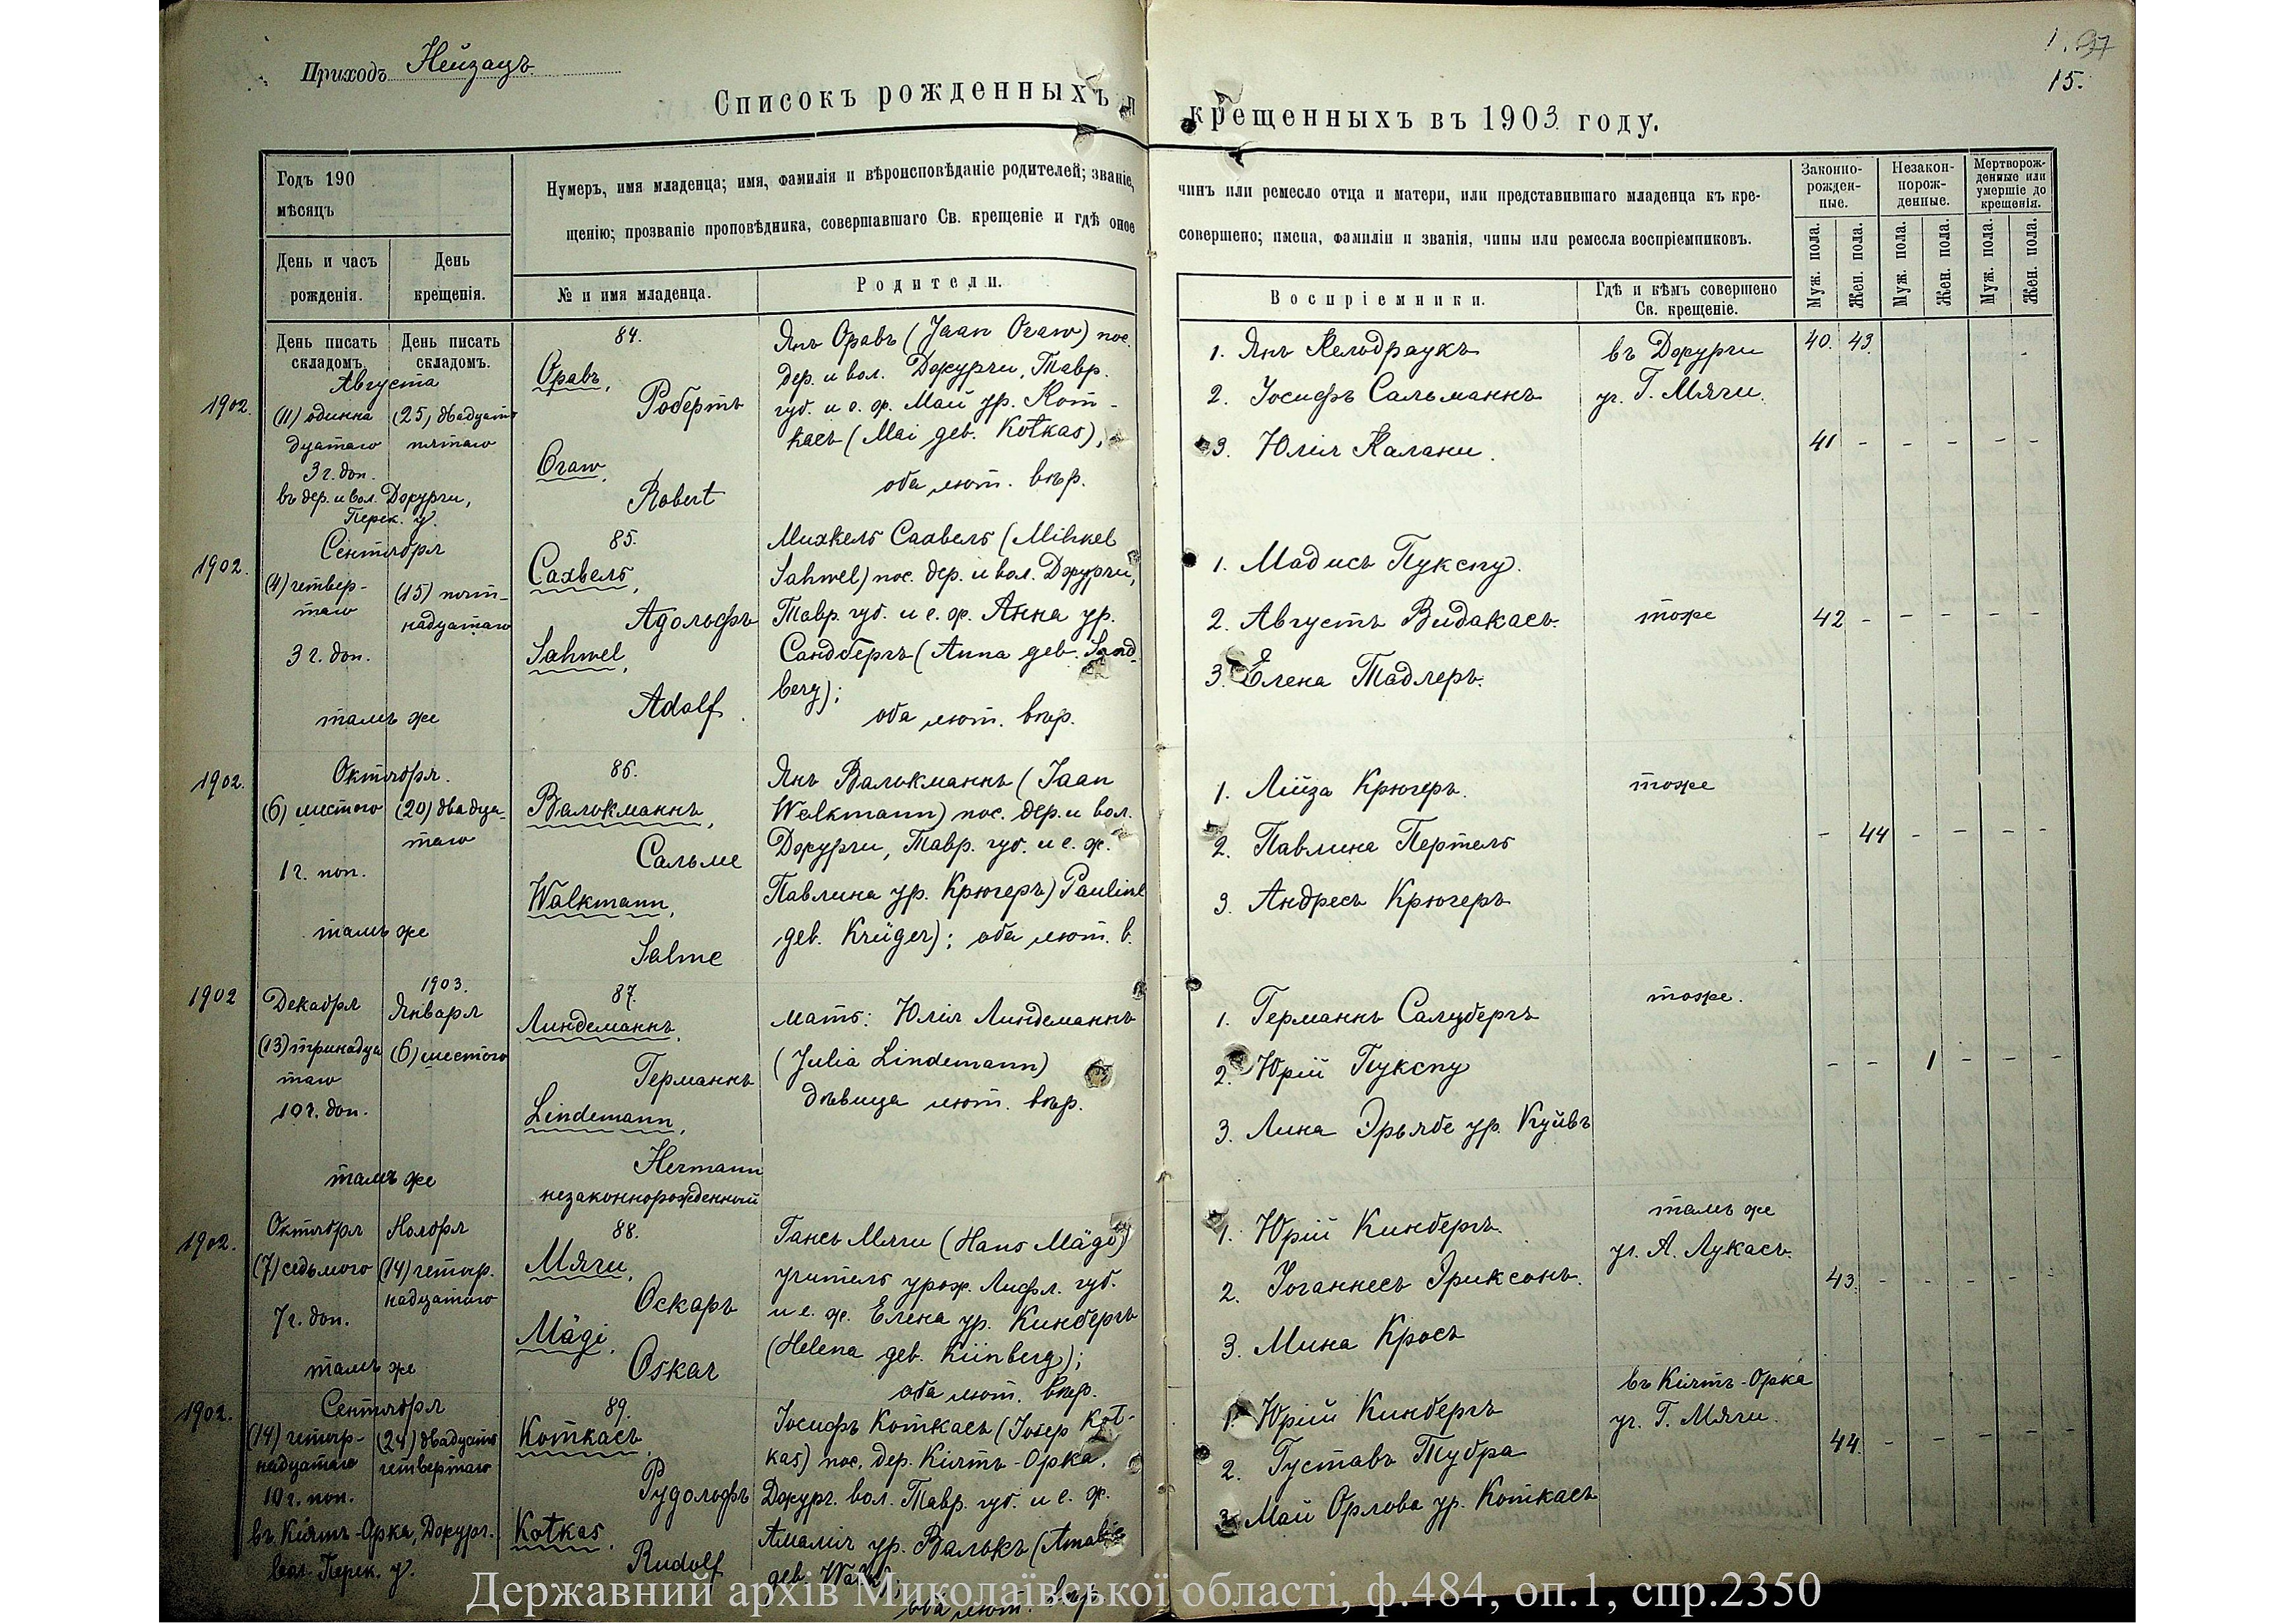 Приходъ Нейзацъ
15.
Списокъ рожденныхъ и крещенныхъ въ 1903 году.
Годъ 190
мѣсяцъ
День и часъ рожденія.
День крещенія.
Нумеръ, имя младенца; имя, фамилія и вѣроисповѣданіе родителей; званіе, чинъ или ремесло отца и матери, или представившаго младенца къ кре-
щенію; прозваніе проповѣдника, совершавшаго Св. крещеніе и гдѣ оное совершено; имена, фамиліи и званія, чины или ремесла воспріемниковъ.
№ и имя младенца.
Родители.
Воспріемники.
Гдѣ и кѣмъ совершено Св. крещеніе.
Законно-рожден-ные.
Незакон-норож-денные.
Мертворож-денные или умершіе до крещенія.
Муж. пола.
Жен. пола.
Муж. пола.
Жен. пола.
Муж. пола.
Жен. пола.
День писать складомъ.
День писать складомъ.
1902.
Августа
(11) одинна
дцатаго
3 г. доп.
въ дер. и вол. Джурчи,
Перек. у.
(25) двадцать
пятаго
84.
Оравъ,
Робертъ
Oraw,
Robert
Янъ Оравъ (Jaan Oraw) пос.
дер. и вол. Джурчи, Тавр.
губ. и е. ж. Май ур. Кот-
касъ (Mai geb. Kotkas),
оба лют. вѣр.
1. Янъ Кельдраукъ
2. Іосифъ Сальманнъ
3. Юлія Калани.
въ Джурчи
уч. Г. Мяги.
40. 43.
41 - - - - -
1902.
Сентября
(4) четвер-
таго
3 г. доп.
тамъ же
(15) пят-
надцатаго
85.
Сахвель,
Адольфъ
Sahwel,
Adolf.
Михкель Сахвель (Mihkel
Sahwel) пос. дер. и вол. Джурчи,
Тавр. губ. и е. ж. Анна ур.
Сандбергъ (Anna geb. Sand-
berg);
оба лют. вѣр.
1. Мадисъ Пукспу.
2. Августъ Видакасъ.
3. Елена Тадлеръ.
тоже
42 - - - - -
1902.
Октября.
(6) шестого
1 г. поп.
тамъ же
(20) двадца-
таго
86.
Валькманнъ,
Сальме
Walkmann,
Salme
Янъ Валькманнъ (Jaan
Walkmann) пос. дер. и вол.
Джурчи, Тавр. губ. и е. ж.
Павлина ур. Крюгеръ) Pauline
geb. Krüger); оба лют. в.
1. Лійза Крюгеръ.
2. Павлина Пертель
3. Андресъ Крюгеръ
тоже
- 44 - - - -
1902
Декабря
(13) тринадца
таго
10 г. доп.
тамъ же
1903.
Января
(6) шестого
87.
Линдеманнъ,
Германнъ
Lindemann,
Hermann
незаконнорожденный
мать: Юлія Линдеманнъ
(Julia Lindemann)
дѣвица лют. вѣр.
1. Германнъ Салубергъ
2. Юрій Пукспу
3. Лина Эрьябе ур. Куйвъ
тоже.
- - 1 - - -
1902.
Октября
(7) седьмого
7 г. доп.
тамъ же
Ноября
(14) четыр.
надцатаго
88.
Мяги,
Оскаръ
Mägi,
Oskar
Гансъ Мяги (Hans Mägi)
учитель урож. Лифл. губ.
и е. ж. Елена ур. Кинбергъ
(Helena geb. Kiinberg);
оба лют. вѣр.
1. Юрій Кинбергъ.
2. Іоганнесъ Эриксонъ.
3. Мина Кросъ
тамъ же
уч. А. Лукасъ.
43. - - - - -
1902.
Сентября
(14) четыр-
надцатаго
10 г. поп.
въ Кіятъ-Орка, Джург.
вол. Перек. у.
(24) двадцать
четвертаго
89.
Коткасъ,
Рудольфъ
Kotkas,
Rudolf
Іосифъ Коткасъ (Josep Kot-
kas) пос. дер. Кіятъ-Орка,
Джург. вол. Тавр. губ. и е. ж.
Амалія ур. Валькъ (Amalie
geb. Walk);
оба лют. вѣр.
1. Юрій Кинбергъ
2. Густавъ Тубра
3. Май Орлова ур. Коткасъ
въ Кіятъ-Орка
уч. Г. Мяги.
44. - - - - -
Державний архів Миколаївської області, ф.484, оп.1, спр.2350